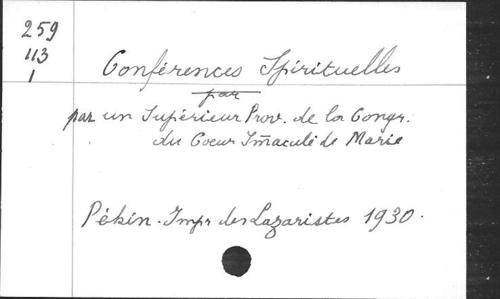 259
113
1
Conférences Spirituelles
par
par un Supérieur Prov. de la Congr.
du Coeur Im̃aculé de Marie
Pékin - Impr des Lazaristes 1930.